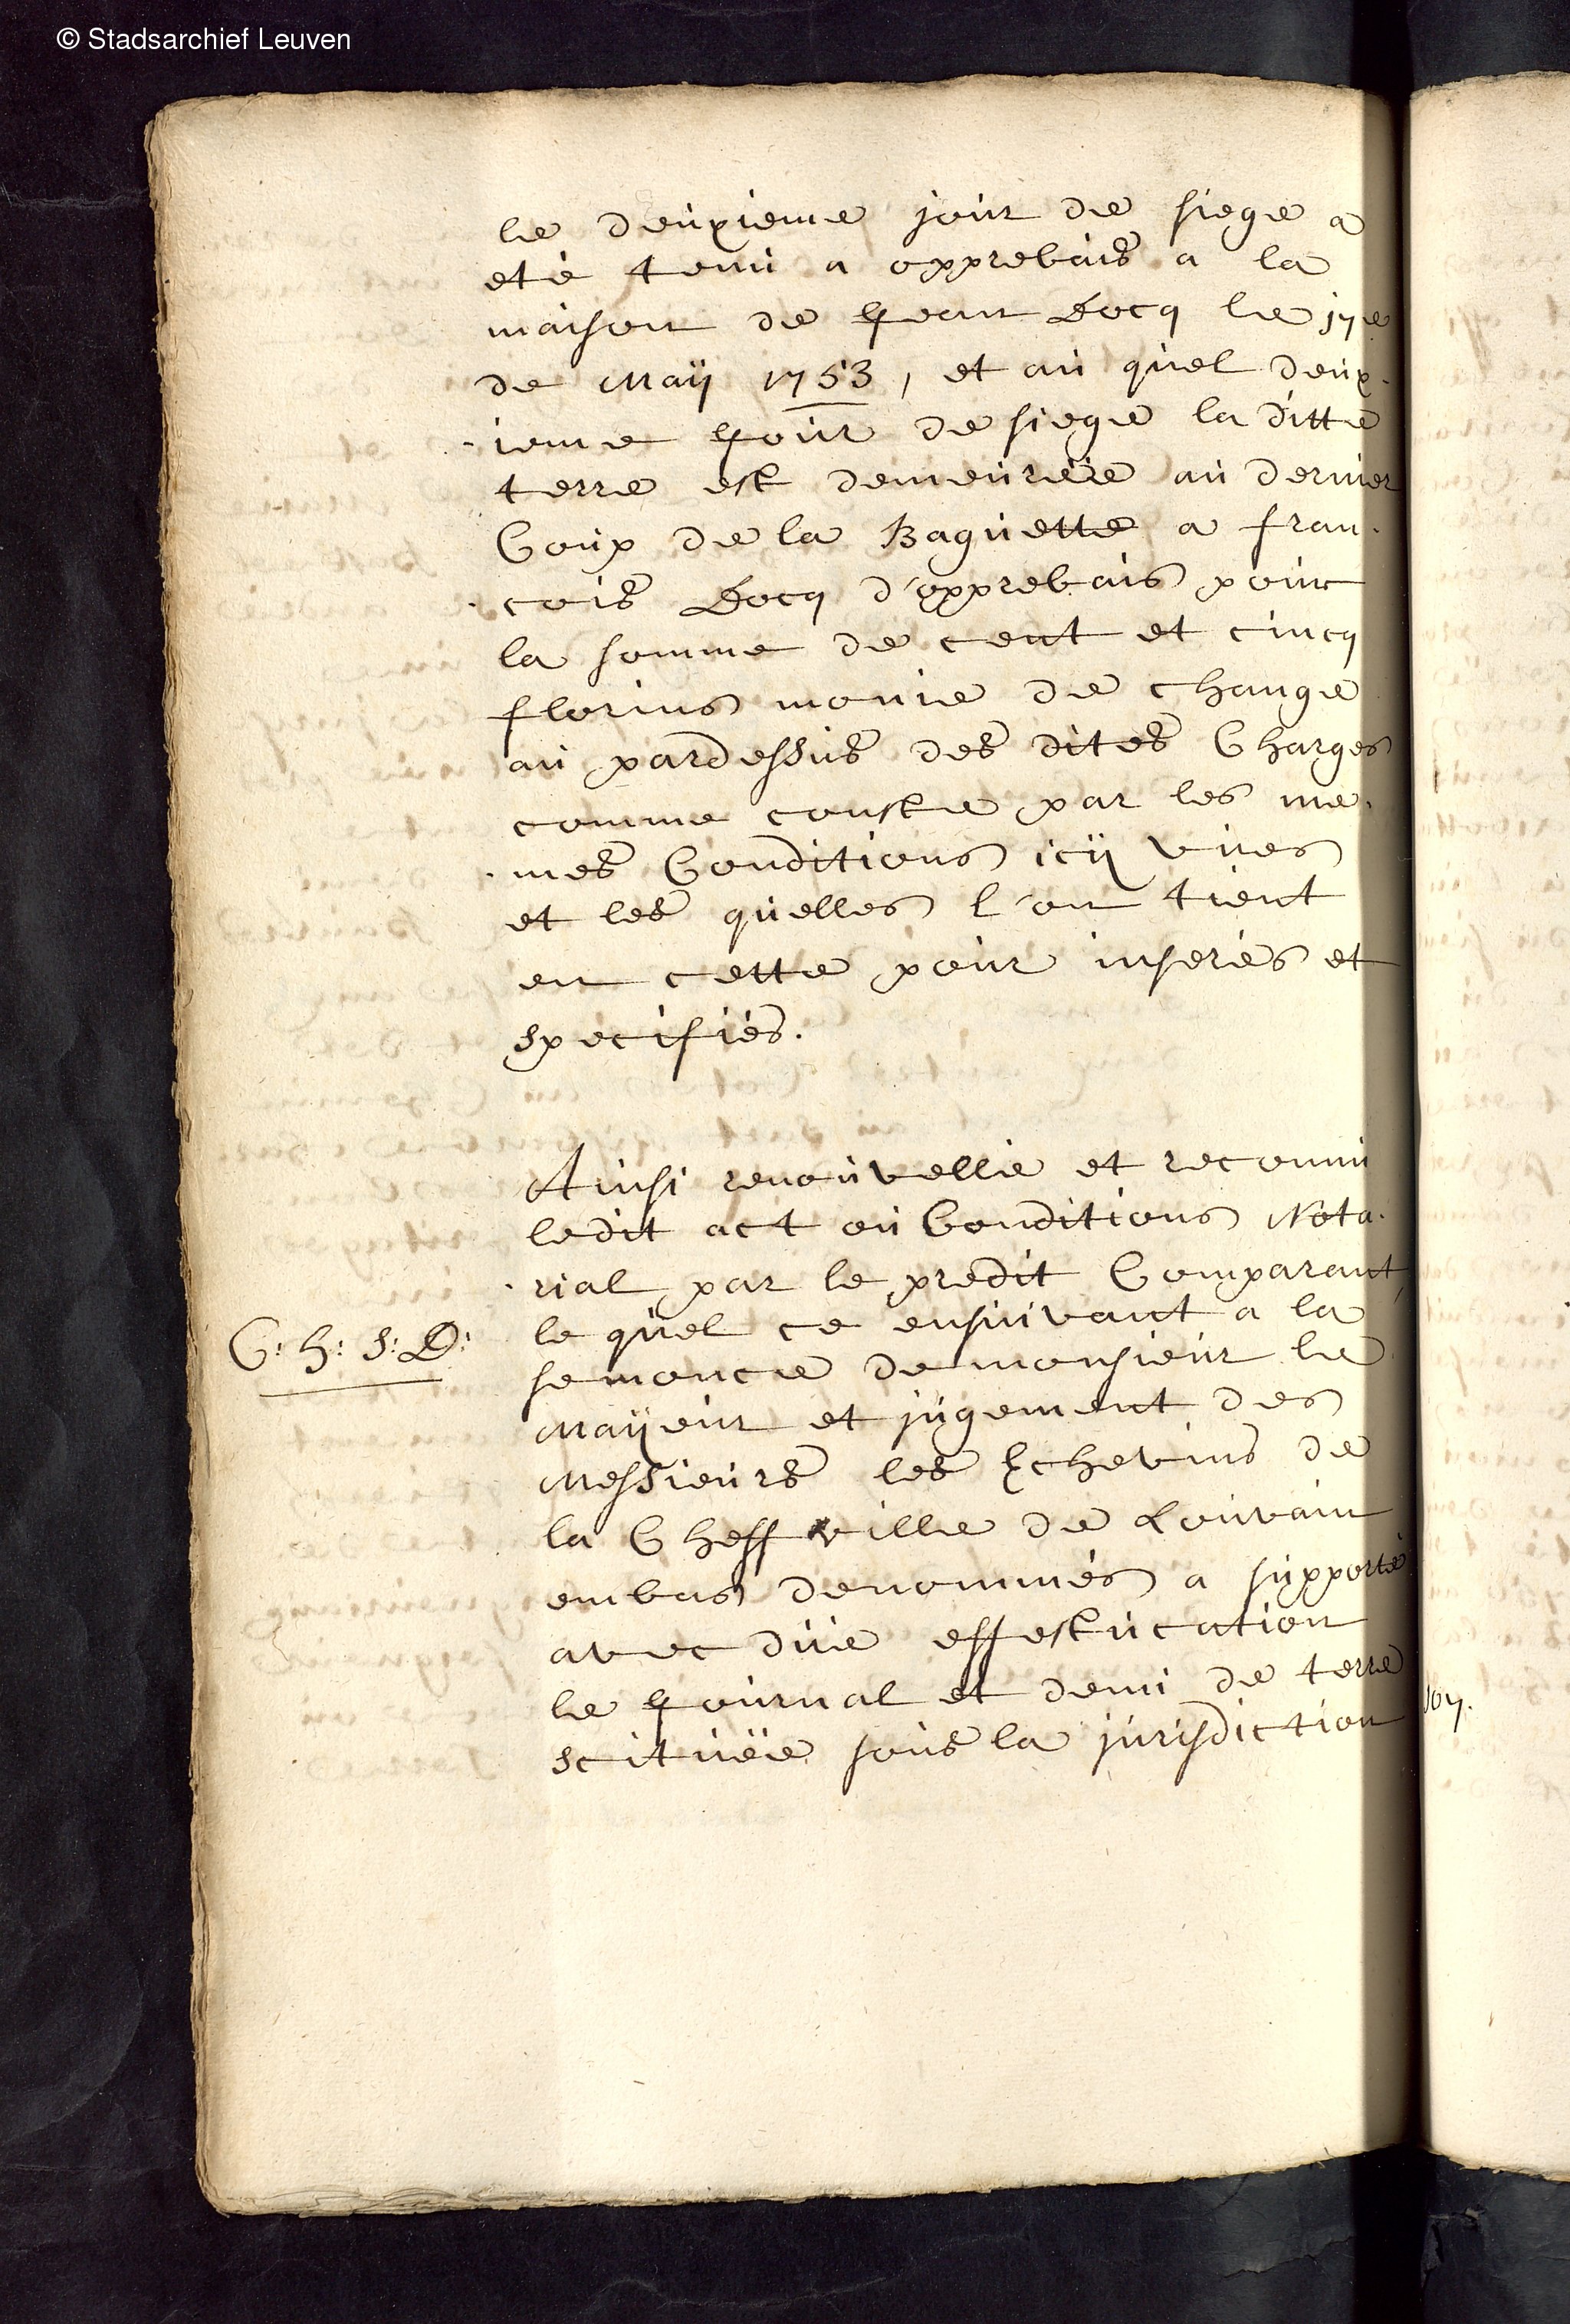 © Stadsarchief Leuven
le deuxieme jour de siege a
eté tenu a opprebais a la
maison de Jean Docq le 17e
de Maÿ 1753, et au quel deux-
-ieme Jour de siege la ditte
terre est demeureïe au dernier
Coup de la Baguette a fran-
-cois Docq d'opprebais pour
la somme de cent et cincq
florins monie de change
au pardessus des dites Charges
comme conste par les me-
-mes Conditions icÿ vues
et les quelles l'on tient
en cette pour inserés et
specifiés.
Ainsi renouvellie et reconnu
ledit act ou Conditions Nota-
-rial par le predit Comparant,
le quel ce ensuivant a la
C: H: S: D:
semonce de monsieur le
Maÿeur et jugement des
Messieurs les Echevins de
la Cheff ville de Louvain
embas denommés a supporté
avec düe effestucation
le Journal et demi de terre
scituëe sous la jurisdiction